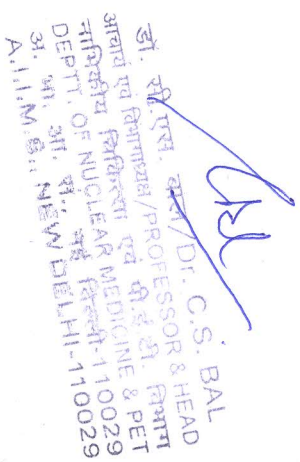 डॉ. सी. एस. बल/Dr. C.S. BAL
आचार्य एवं विभागाध्यक्ष/PROFESSOR & HEAD
नाभिकीय चिकित्सा एवं पी.ई.टी. विभाग
DEPTT. OF NUCLEAR MEDICINE & PET
अ. भा. आ. सं., नई दिल्ली-110029
A.I.I.M.S., NEW DELHI-110029